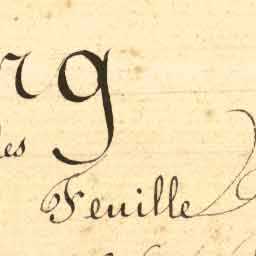 rg
les
Feuille